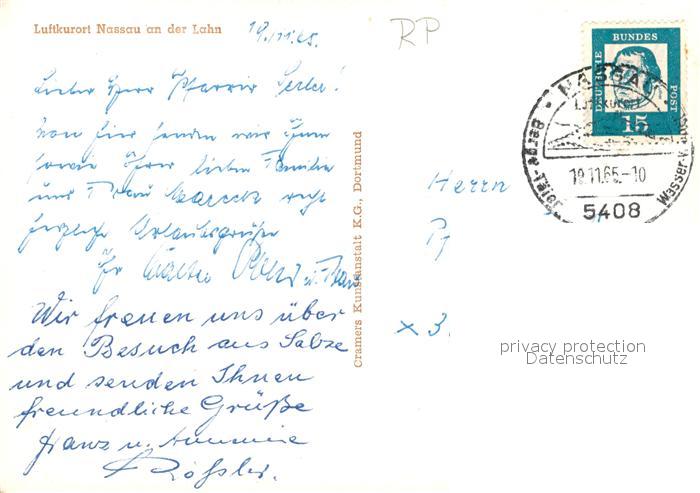 Luftkurort Nassau an der Lahn
19.11.65.
RP
Lieber Herr Pfarrer
Von hier senden wir Ihnen
sowie Ihrer lieben Familie
und Frau recht
herzliche Urlaubsgrüße
Ihr u. Frau
Wir freuen uns über
den Besuch aus Salze
und senden Ihnen
freundliche Grüße
Franz u. Annemie
Rößler.
Cramers Kunstanstalt K.G., Dortmund
DEUTSCHE BUNDESPOST
15
NASSAU
LUFTKURORT
Berge-Täler
Wasser-u.
19.11.65-10
5408
Herrn
Pf
x 3.
privacy protection
Datenschutz